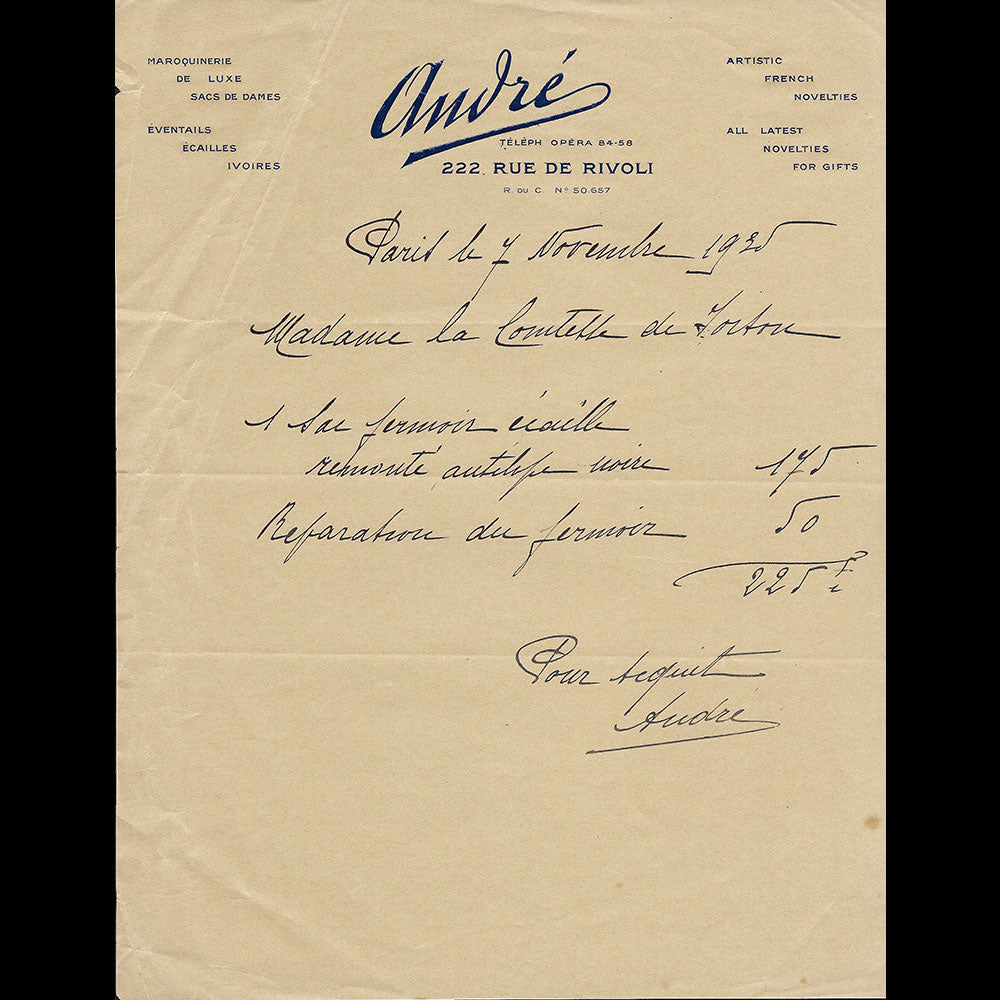 MAROQUINERIE
DE LUXE
SACS DE DAMES
ÉVENTAILS
ÉCAILLES
IVOIRES
André
TÉLÉPH OPÉRA 84-58
222. RUE DE RIVOLI
R. DU C. Nº 50.657
ARTISTIC
FRENCH
NOVELTIES
ALL LATEST
NOVELTIES
FOR GIFTS
Paris le 7 Novembre 1935
Madame la Comtesse de
1 Sac fermoir écaille
remonté antilope noire 175
Reparation du fermoir 50
225 f
Pour acquit
André